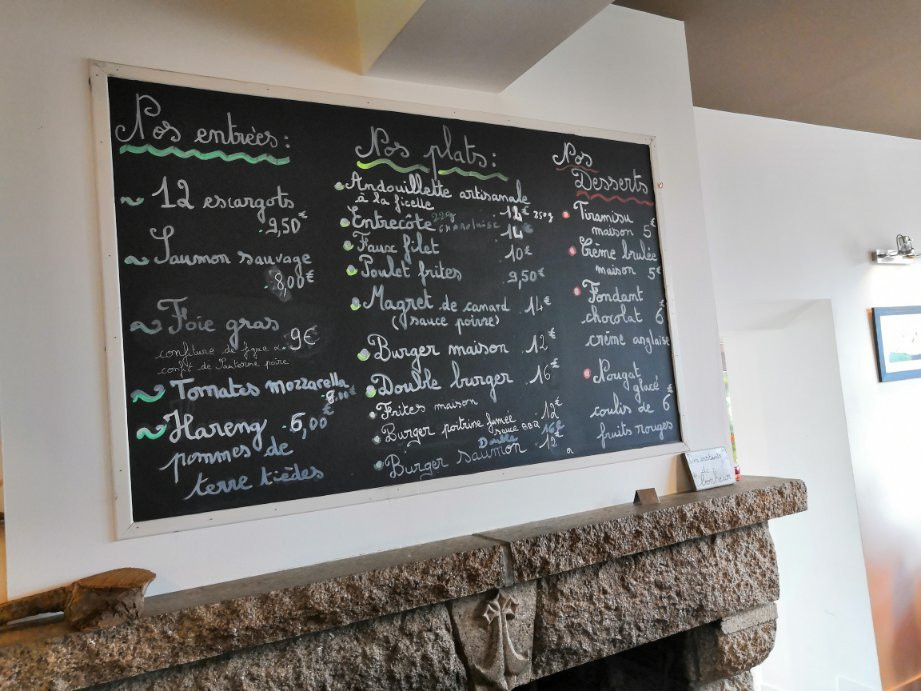 Nos entrées:
12 escargots
9,50€
Saumon sauvage
8,00€
Foie gras
9€
confiture de figue
Tomates mozzarella
8,00€
Hareng 6,00€
pommes de
terre tièdes
Nos plats:
Andouillette artisanale
à la ficelle 12€ 250g
Entrecôte 220g charolaise 14€
Faux filet 10€
Poulet frites 9,50€
Magret de canard 14€
(sauce poivre)
Burger maison 12€
Double burger 16€
Frites maison
Burger poitrine fumée 12€
sauce BBQ
Double 16€
Burger saumon 12€
Nos
Desserts
Tiramisu
maison 5€
Crème brulée
maison 5€
Fondant
chocolat 6€
crème anglaise
Nougat
glacé
coulis de 6€
fruits rouges
de
bonheur